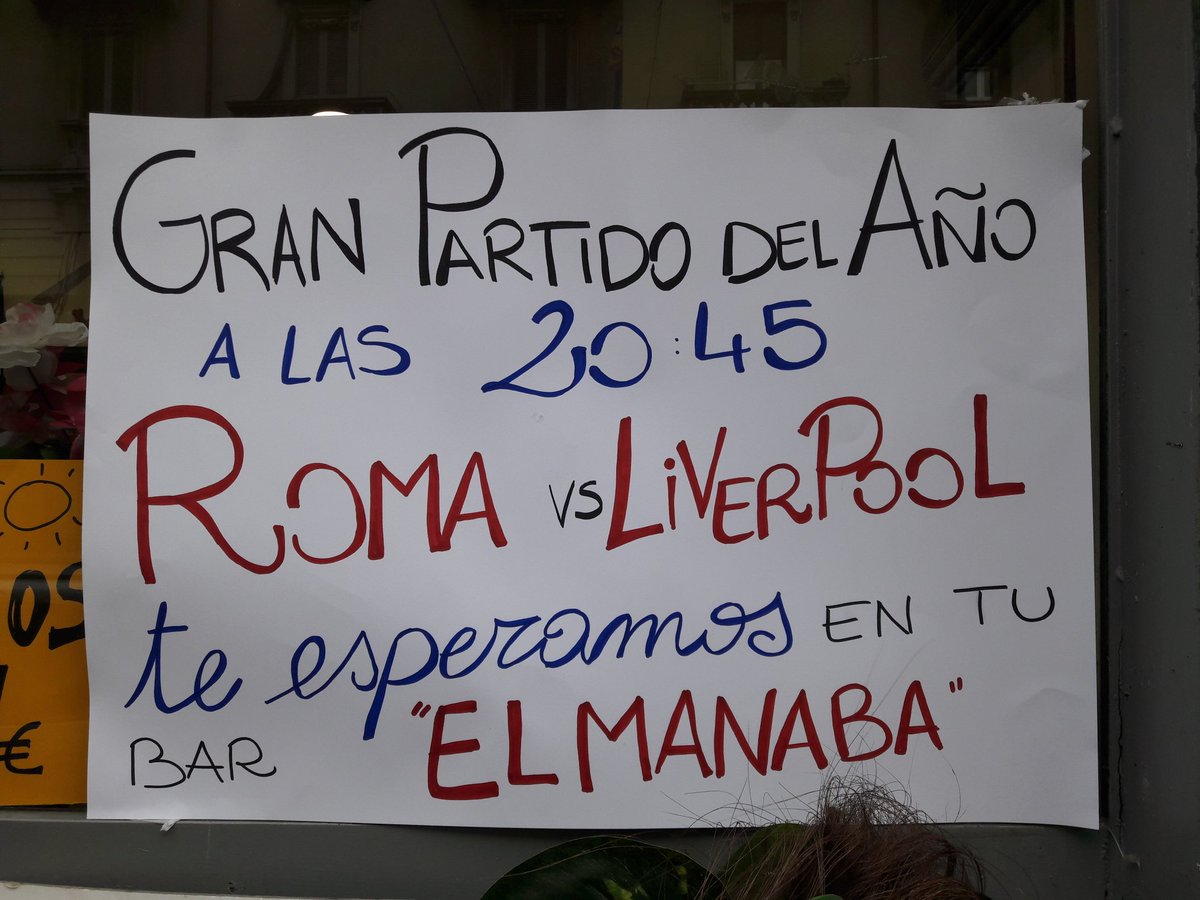 GRAN PARTIDO DEL AÑO
A LAS 20:45
ROMA VS LIVERPOOL
te esperamos EN TU
BAR "EL MANABA"
OS
€